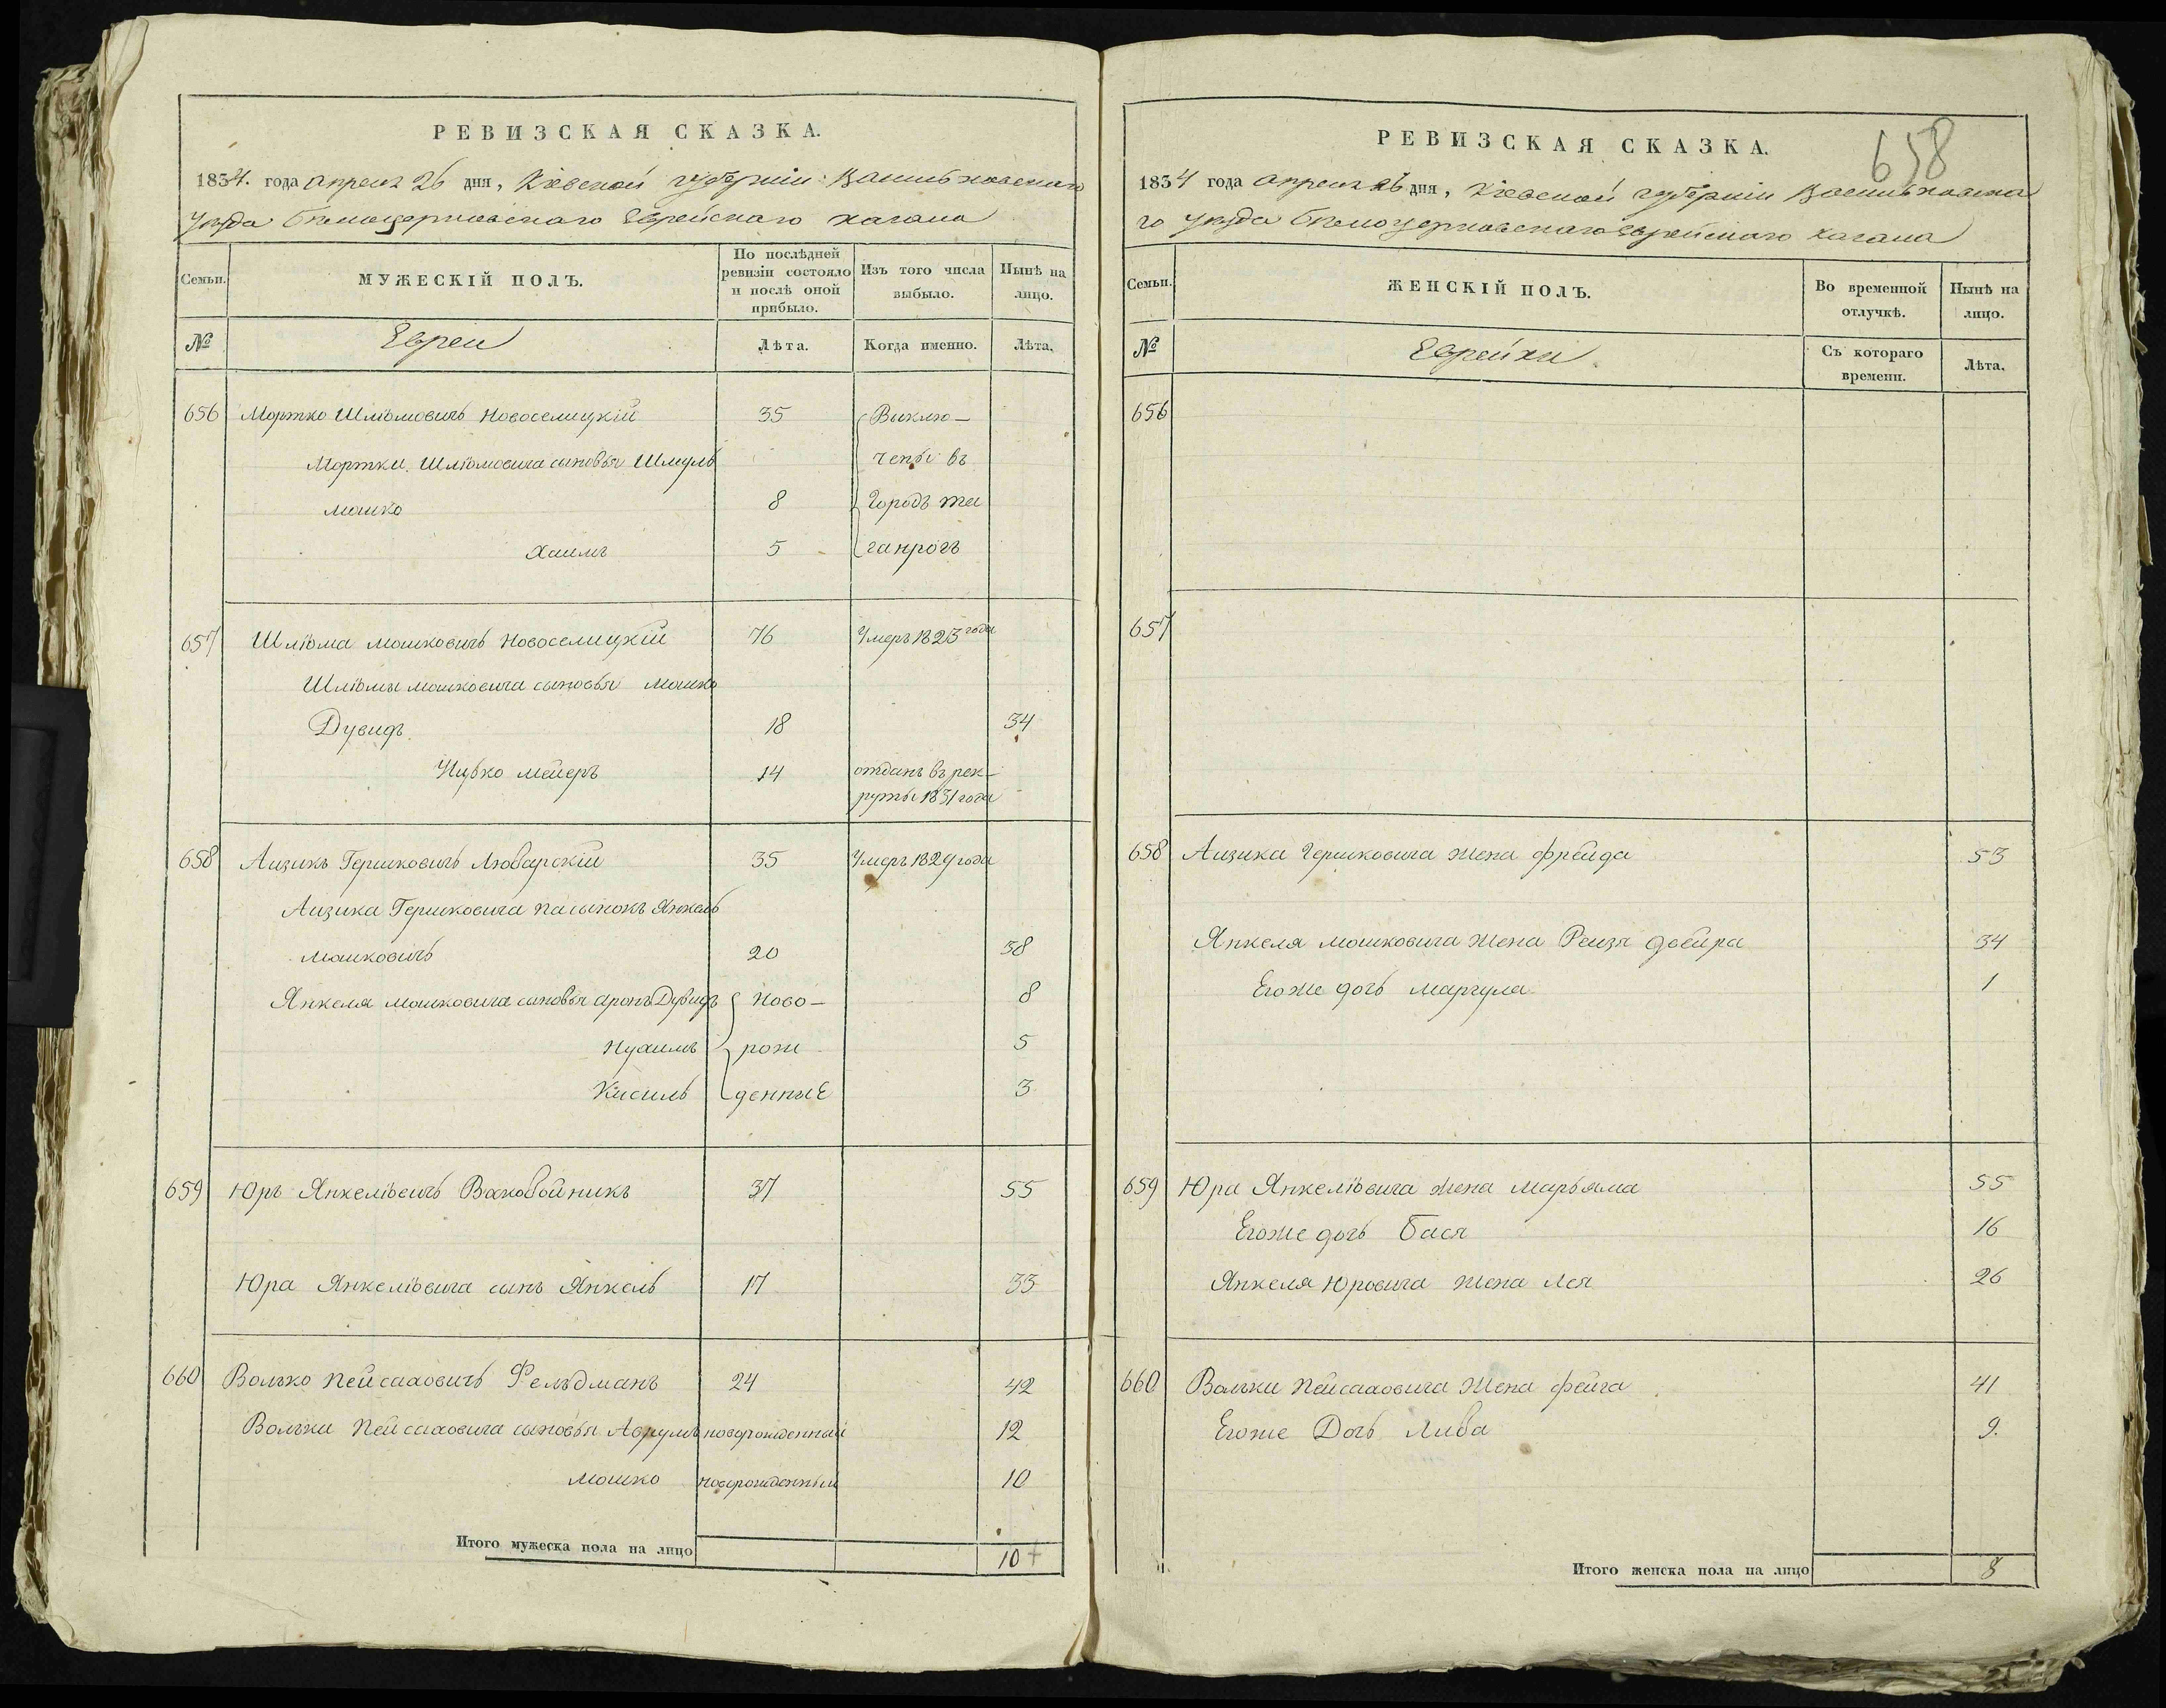 РЕВИЗСКАЯ СКАЗКА.
1834. года апреля 26 дня, Кіевской губерніи Васильковскаго
уезда белоцерковскаго Еврейскаго кагала
Семьи.
МУЖЕСКІЙ ПОЛЪ.
По послѣдней ревизіи состояло и послѣ оной прибыло.
Изъ того числа выбыло.
Нынѣ на лицо.
№
Евреи
Лѣта.
Когда именно.
Лѣта.
656 Мортко Шліомовичъ Новоселицкій 35 Выклю-
Мортки Шліомовича сыновья Шмуль чены въ
мошко 8 Городъ та
Хаимъ 5 ганрогъ
657 Шліома мошковичъ Новоселицкій 76 Умеръ 1823 года
Шліомы мошковича сыновья мошко
Дувидъ 18 34
Ицко мейеръ 14 отданъ въ рек-
руты 1831 года
658 Аизикъ Гершковичъ Любарскій 35 Умеръ 1829 года
Аизика Гершковича пасынокъ Янкель
мошковичъ 20 38
Янкеля мошковича сыновья аронъ Дувидъ Ново- 8
Нухимъ рож 5
Кисиль денные 3
659 Юръ Янкеліовичъ 37 55
Юра Янкеліовича сынъ Янкель 17 33
660 Волько Пейсаховичъ Фельдманъ 24 42
Вольки Пейсаховича сыновья Аврумъ новорожденный 12
мошко новорожденный 10
Итого мужеска пола на лицо 10
РЕВИЗСКАЯ СКАЗКА.
658
1834 года апреля 26 дня, Кіевской губерніи Васильковска
го уезда белоцерковскаго Еврейскаго кагала
Семьи.
ЖЕНСКІЙ ПОЛЪ.
Во временной отлучкѣ.
Нынѣ на лицо.
№
Еврейки
Съ котораго времени.
Лѣта.
656
657
658 Аизика Гершковича жена фрейда 53
Янкеля мошковича жена Рейзя двейра 34
Егоже дочь маргула 1
659 Юра Янкеліовича жена марьяма 55
Егоже дочь Бася 16
Янкеля Юровича жена Лея 26
660 Вольки Пейсаховича жена фейга 41
Егоже Дочь Либа 9.
Итого женска пола на лицо 8